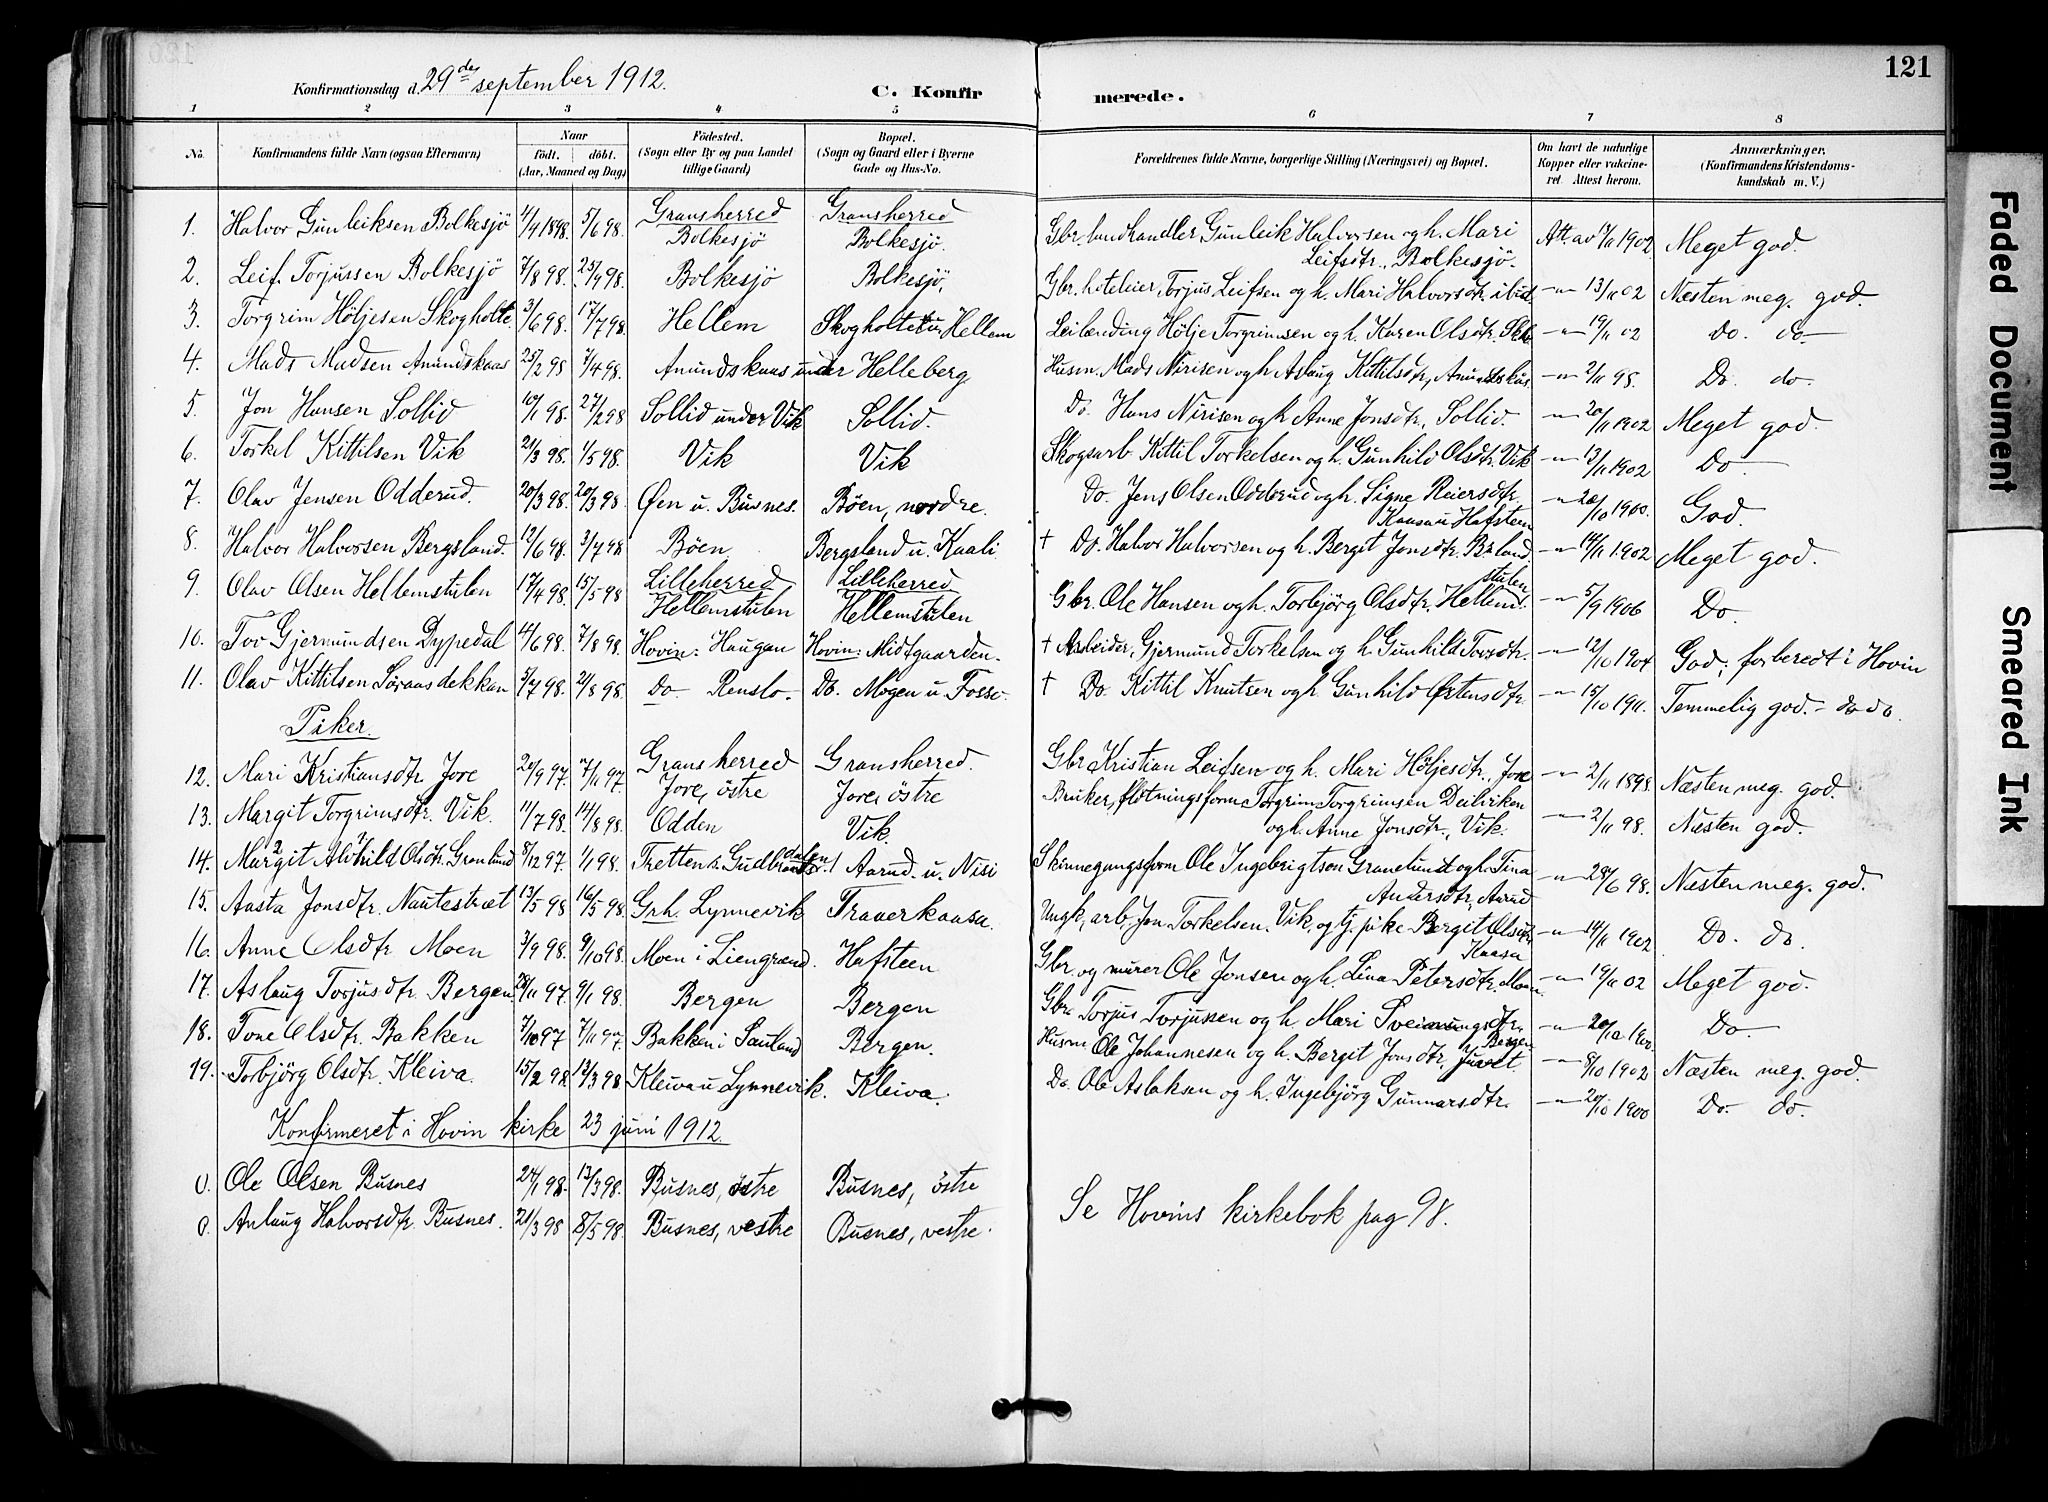 121
Konfirmationsdag d. 29de september 1912.
C. Konfirmerede.
1 2 3 4 5 6 7 8
No. Konfirmandens fulde Navn (ogsaa Efternavn) Naar født. døbt. (Aar, Maaned og Dag) Fødested. (Sogn eller By og paa Landet tillige Gaard) Bopæl. (Sogn og Gaard eller i Byerne Gade og Hus-No. Forældrenes fulde Navne, borgerlige Stilling (Næringsvei) og Bopæl. Om havt de naturlige Kopper eller vakcineret. Attest herom. Anmærkninger. (Konfirmandens Kristendomskundskab m. V.)
1. Halvor Gunleiksen Bolkesjö 4/4 1898. 5/6 98. Gransherred Bolkesjö Gransherred Bolkesjö. Gbr. landhandler Gunleik Halvorsen og h. Mari Leifsdtr., Bolkesjö. Att. av 1902 Meget god.
2. Leif Torjussen Bolkesjö 7/8 98. 25/9 98. Bolkesjö Bolkesjö, Gbr. hoteleier, Torjus Leifsen og h. Mari Halvorsdtr. ibid. -"- 13/11 02 Næsten meg. god.
3. Torgrim Höljesen Skogholte 3/6 98. 17/7 98. Hellem Skogholte u. Hellem Leilending Hölje Torgrimsen og h. Karen Olsdtr. -"- 19/11 02 Do. do
4. Mads Madsen Amundskaas 25/2 98 7/4 98. Amundskaas under Helleberg Husm. Mads Nirisen og h. Aslaug Kittilsdtr, -"- 2/11 98. Do. do.
5. Jon Hansen Sollid 10/1 98. 27/2 98 Sollid under Vik Sollid. Do. Hans Nirisen og h. Anne Jonsdtr., Sollid. -"- 20/11 1902 Meget god.
6. Torkel Kittilsen Vik 21/3 98. 1/5 98. Vik Vik Skogsarb. Kittil Torkelsen og h. Gunhild Olsdtr. Vik -"- 13/11 1902 Do
7. Olav Jensen Odderud. 20/3 98. 20/3 98 Øen u. Busnes. Böen, nordre. Do. Jens Olsen Odderud og h. Signe Reiersdtr. Kaasa u Hafsteen -"- 20/10 1900. God.
8. Halvor Halvorsen Bergsland. 12/6 98. 3/7 98 Böen Bergsland u. Kaali † Do. Halvor Halvorsen og h. Bergit Jonsdtr. -"- 14/11 1902 Meget god.
9. Olav Olsen Hellemstulen 17/4 98. 15/5 98 Lilleherred Hellemstulen Lilleherred Hellemstulen Gbr. Ole Hansen og h. Torbjörg Olsdtr. Hellemstulen -"- 5/9 1906 Do.
10. Tov Gjermundsen Dypedal 14/6 98. 7/8 98. Hovin: Haugan Hovin: Midtgaarden. † Arbeider, Gjermund Torkelsen og h. Gunhild Tovsdtr. -"- 12/10 1904 God, forberedt i Hovin
11. Olav Kittilsen Söraasdekkan 3/7 98. 21/8 98. Do Renslo. Do. Mogen u. Fosso † Do. Kittil Knutsen og h. Gunhild Østensdtr. -"- 15/10 1911. Temmelig god. - do do.
Piker.
12. Mari Kristiansdtr Jore 20/9 97. 7/11 97. Gransherred Jore, östre Gransherred. Jore, östre Gbr. Kristian Leifsen og h. Mari Höljesdtr., Jore -"- 2/11 1898. Næsten meg. god.
13. Margit Torgrimsdtr. Vik. 11/7 98. 14/8 98. Odden Vik. Bruker, flötningsform. Torgrim Torgrimsen Deilviken og h. Anne Jonsdtr., Vik. -"- 2/11 98. Næsten god.
14. Margit Alvhild Olsdtr. Granlund 8/12 97. 1/1 98. Tretten i Gudbrandsdalen Aarud u. Nisi Skinnegangsform Ole Ingebrigtson Granelund og h. Tina Andersdtr, Aarud -"- 28/6 98. Næsten meg. god.
15. Aasta Jonsdtr. Nautestræt 13/5 98 16/5 98. Grh. Lynnevik Traaerkaasa. Ungk, arb, Jon Torkelsen, Vik, og tj. pike Bergit Olsdtr. Kaasa -"- 14/11 1902. Do. do.
16. Anne Olsdtr Moen 3/9 98. 9/10 98. Moen i Liengrænd. Hafsteen Gbr. og murer Ole Jonsen og h. Lina Petersdtr. Moen -"- 19/11 02 Meget god.
17. Aslaug Torjusdtr. Bergen 28/11 97. 9/1 98. Bergen Bergen Gbr. Torjus Torjussen og h. Mari Sveinungsdtr. Bergen -"- Do
18. Tone Olsdtr. Bakken 7/10 97 7/11 97. Bakken i Sauland Bergen. Husm. Ole Johannesen og h. Bergit Jonsdtr, Juvet -"- 8/10 1902 Næsten meg. god.
19. Torbjörg Olsdtr. Kleiva. 15/2 98 12/3 98 Kleiva u Lynnevik. Kleiva. Do. Ole Aslaksen og h. Ingebjörg Gunnarsdtr. -"- 20/10 1900 Do. do.
Konfirmeret i Hovin kirke 23 juni 1912.
0. Ole Olsen Busnes 24/1 98. 13/3 98. Busnes, östre Busnes, östre
0. Anlaug Halvorsdtr. Busnes. 21/3 98 8/5 98. Busnes, vestre Busnes, vestre.
Se Hovins kirkebok pag 98.
Faded Document
Smeared Ink